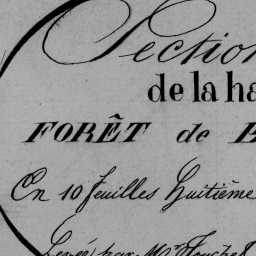 Section
de la ha
FORÊT de
En 10 feuilles Huitième
Levée par Mr